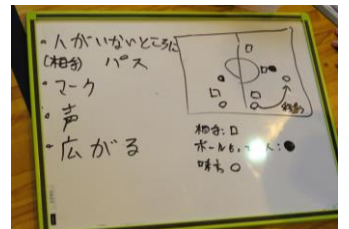 ・人がいないところに
(相手) パス
・マーク
・声
・広がる
相手:□
味方○